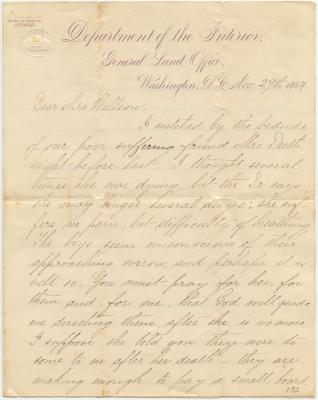 Department of the Interior,
General Land Office,
Washington, D.C. Nov. 29th 1884
Dear Mrs Willson,
I watched by the bedside
of our poor suffering friend Mrs
night before last. I thought several
times she was dying but the Dr says
she may linger several days; she suf-
fers no pain, but difficulty of breathing
The boys seem unconscious of their
approaching sorrow, and perhaps it is
well so. You must pray for her, for
them and, for me, that God will guide
me directing them, after she is no more.
I suppose she told you they were to
come to us after her death - they are
making enough to pay a small board